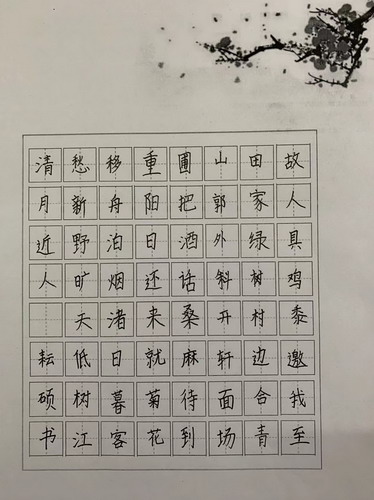 故人具鸡黍邀我至
田家绿树村边合青
山郭外斜开轩面场
圃把酒话桑麻待到
重阳日还来就菊花
移舟泊烟渚日暮客
愁新野旷天低树江
清月近人 耘硕书